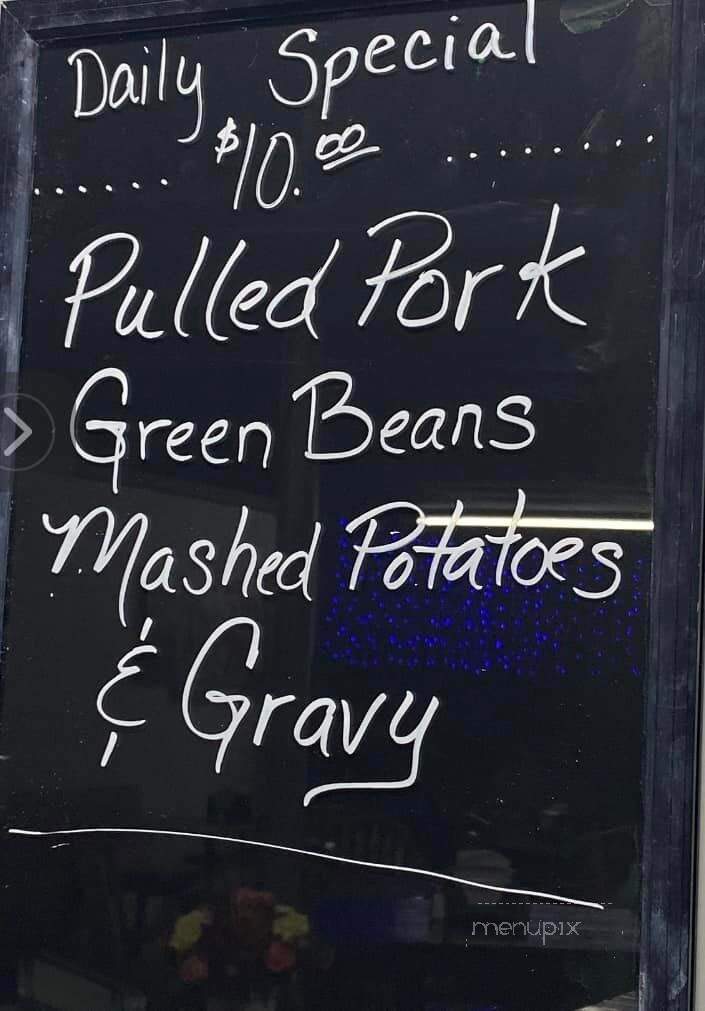 Daily Special
$10.00
Pulled Pork
Green Beans
Mashed Potatoes
& Gravy
menupix